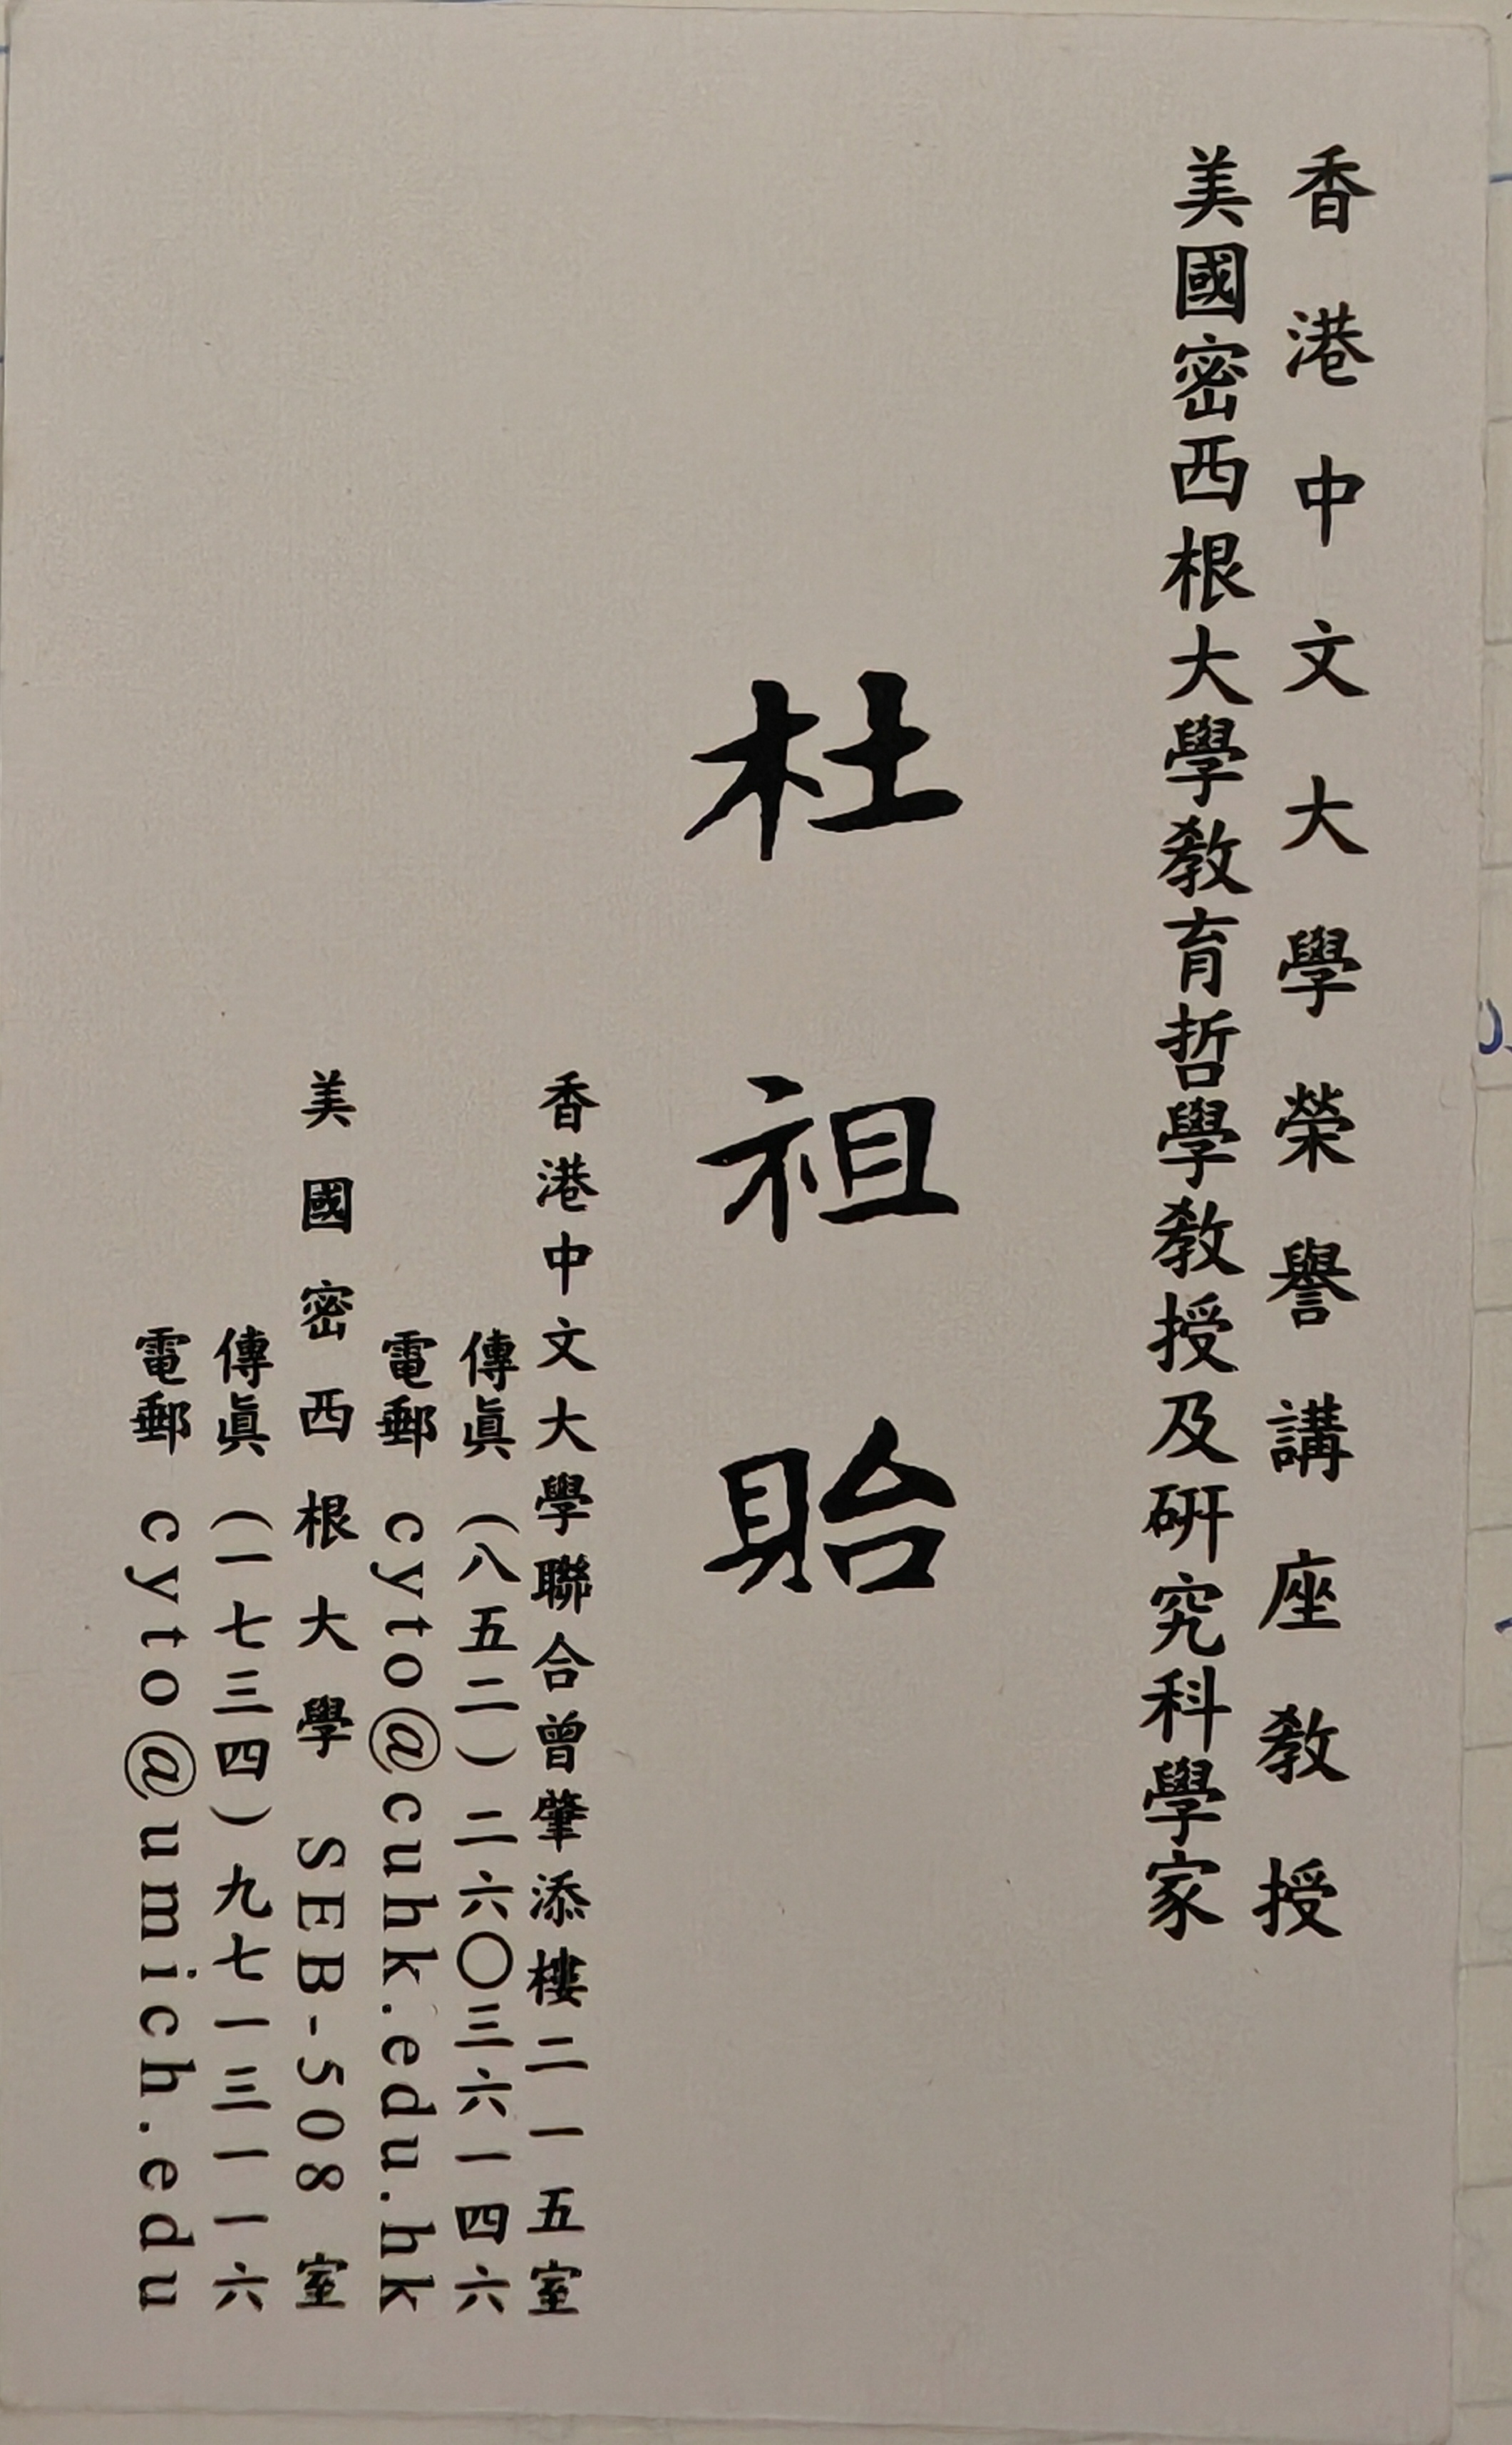 香港中文大學榮譽講座教授
美國密西根大學教育哲學教授及研究科學家
杜祖貽
香港中文大學聯合曾肇添樓二一五室
傳眞 (八五二) 二六〇三六一四六
電郵 cyto@cuhk.edu.hk
美國密西根大學 SEB-508 室
傳眞 (一七三四) 九七一三一一六
電郵 cyto@umich.edu